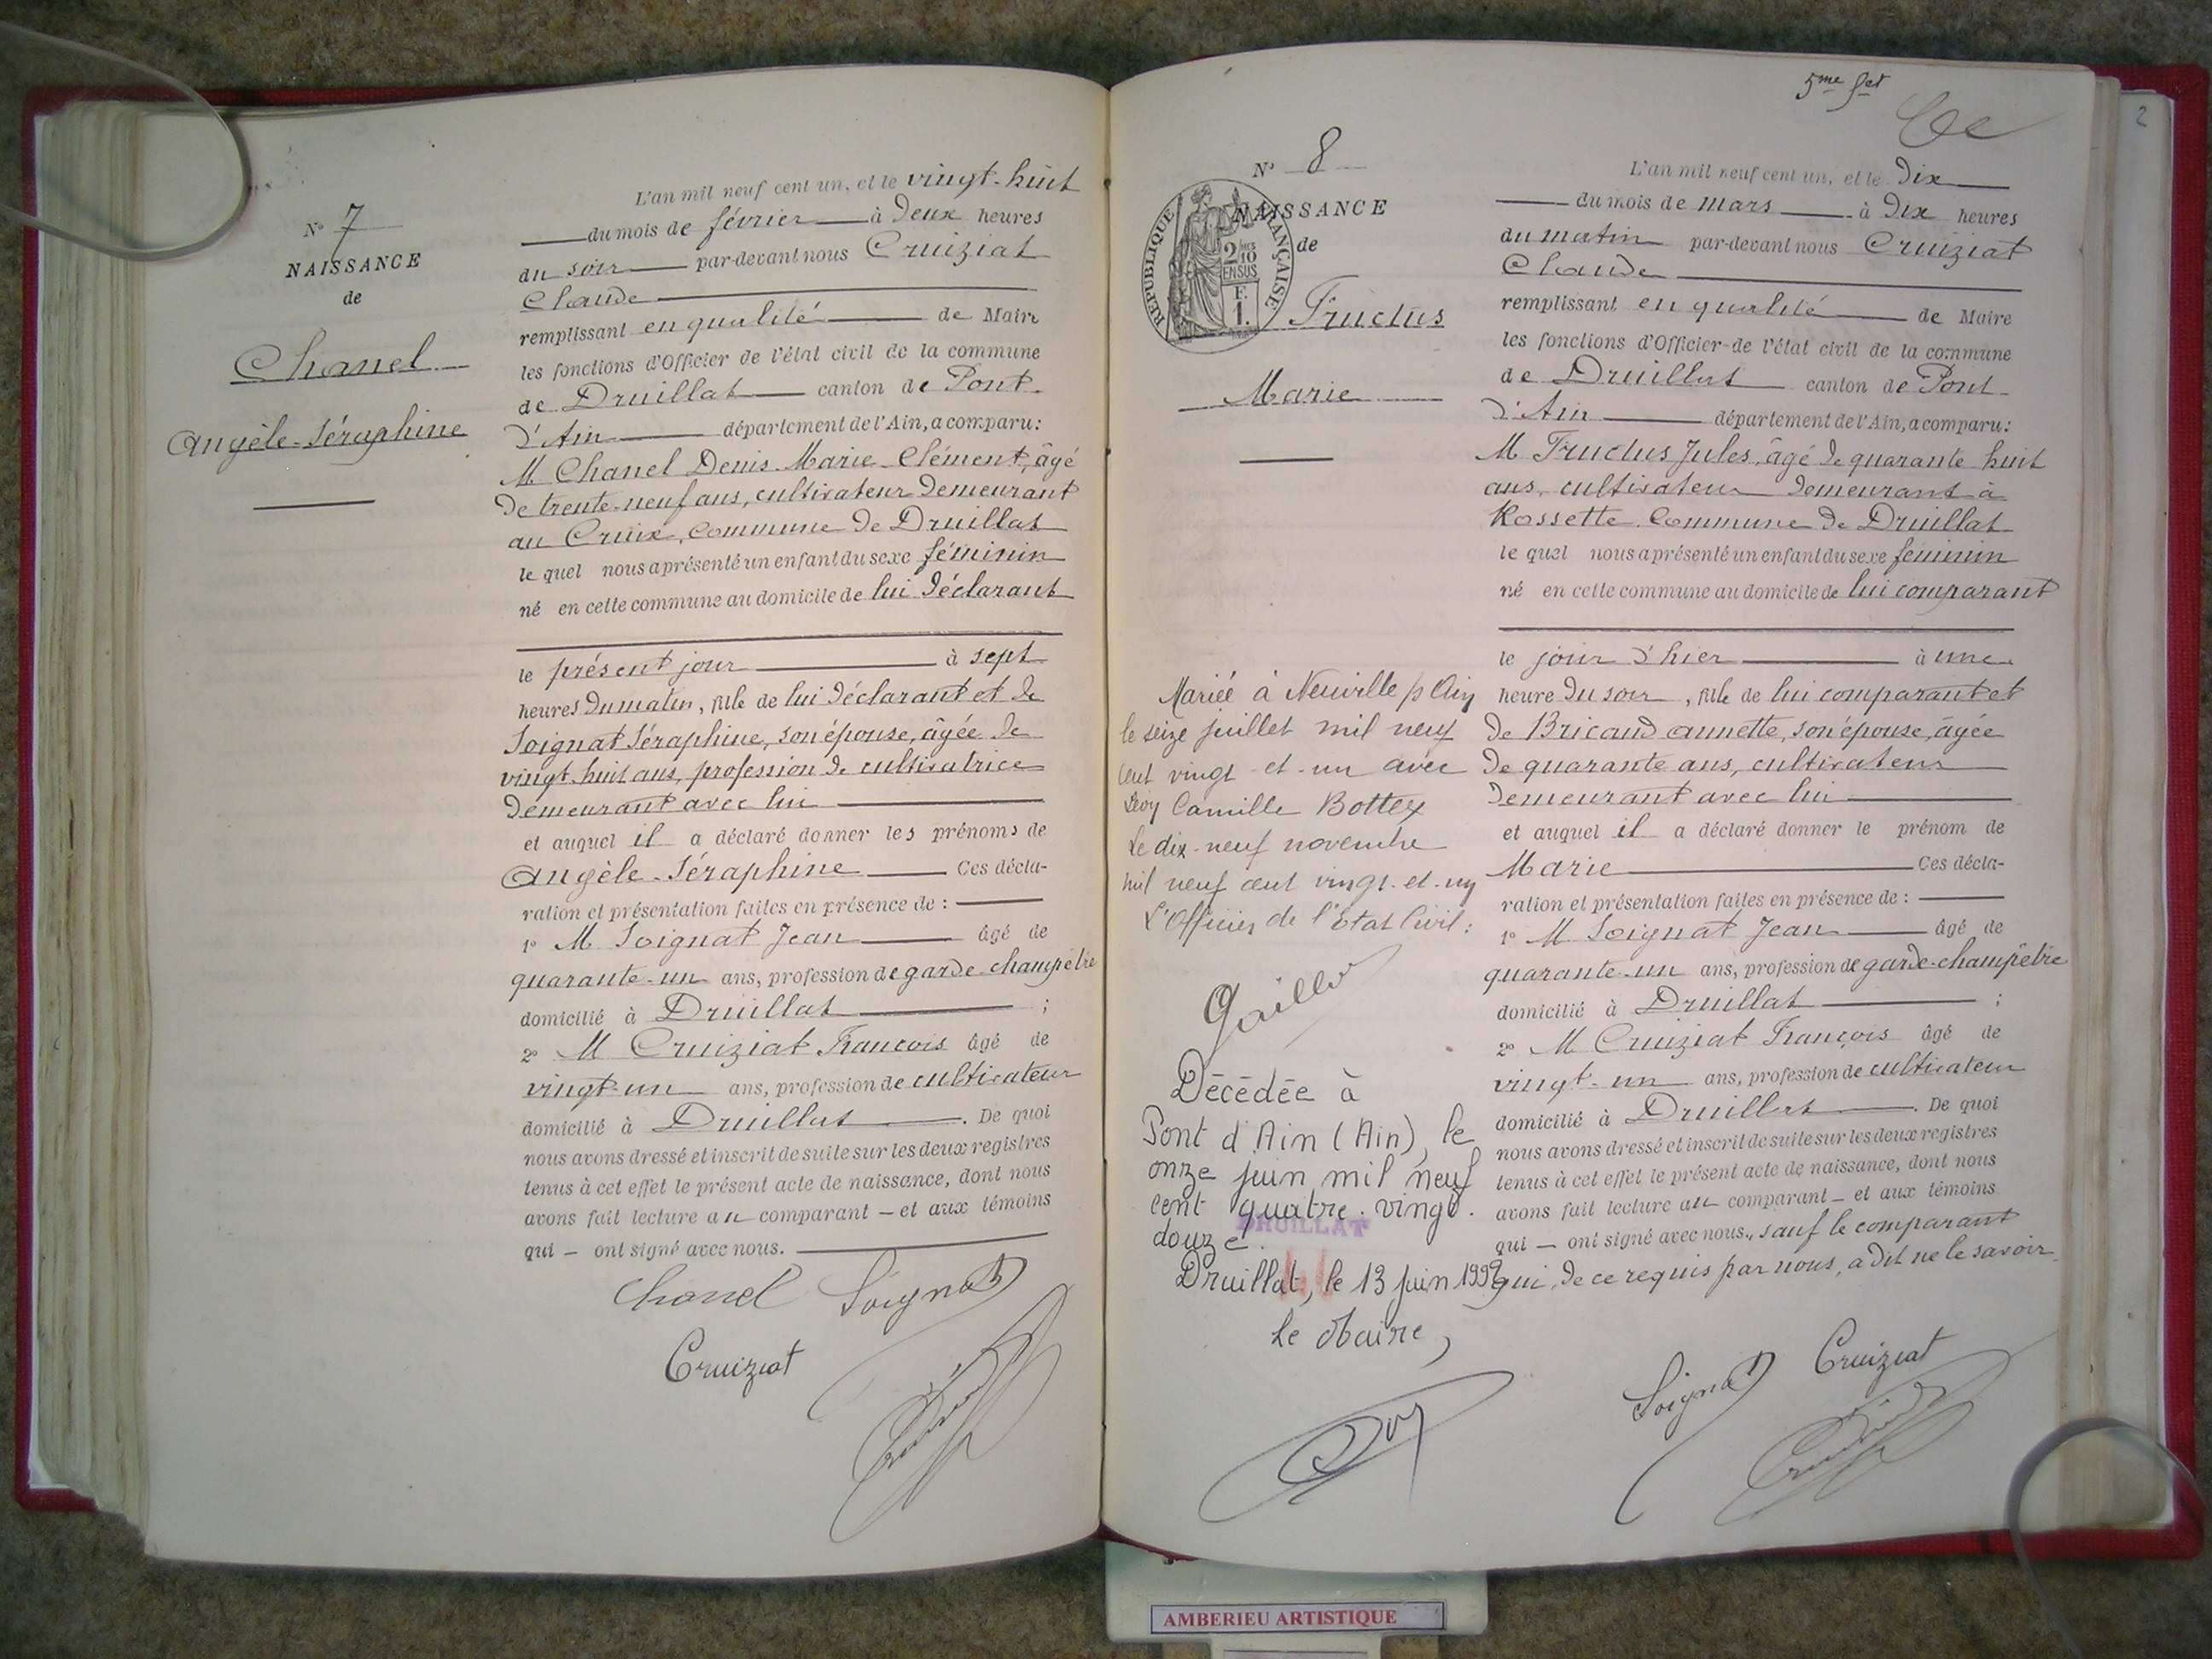 N° 7
NAISSANCE
de
Chanel
Angèle-Séraphine
L'an mil neuf cent un, et le vingt-huit
du mois de février à deux heures
du soir par-devant nous Cruiziat
Claude
remplissant en qualité de Maire
les fonctions d'Officier de l'état civil de la commune
de Druillat canton de Pont-
d'Ain département de l'Ain, a comparu:
M Chanel Denis-Marie-Clément, âgé
de trente-neuf ans, cultivateur demeurant
au Cruix, commune de Druillat
le quel nous a présenté un enfant du sexe féminin
né en cette commune au domicile de lui déclarant
le présent jour à sept
heures du matin, fille de lui déclarant et de
Soignat Séraphine, son épouse, âgée de
vingt-huit ans, profession de cultivatrice
demeurant avec lui
et auquel il a déclaré donner les prénoms de
Angèle-Séraphine Ces décla-
ration et présentation faites en présence de :
1° M Soignat Jean âgé de
quarante-un ans, profession de garde-champêtre
domicilié à Druillat ;
2° M Cruiziat François âgé de
vingt-un ans, profession de cultivateur
domicilié à Druillat . De quoi
nous avons dressé et inscrit de suite sur les deux registres
tenus à cet effet le présent acte de naissance, dont nous
avons fait lecture au comparant – et aux témoins
qui – ont signé avec nous.
Chanel Soignat
Cruiziat
5me fet
2
N° 8
NAISSANCE
de
REPUBLIQUE FRANÇAISE
2/10
EN SUS
F.
1.
Fructus
Marie
L'an mil neuf cent un, et le dix
du mois de mars à dix heures
du matin par-devant nous Cruiziat
Claude
remplissant en qualité de Maire
les fonctions d'Officier de l'état civil de la commune
de Druillat canton de Pont-
d'Ain département de l'Ain, a comparu:
M Fructus Jules, âgé de quarante huit
ans, cultivateur demeurant à
Rossette commune de Druillat
le quel nous a présenté un enfant du sexe féminin
né en cette commune au domicile de lui comparant
le jour d'hier à une
heure du soir, fille de lui comparant et
de Bricaud Annette, son épouse, âgée
de quarante ans, cultivateur
demeurant avec lui
et auquel il a déclaré donner le prénom de
Marie Ces décla-
ration et présentation faites en présence de :
1° M Soignat Jean âgé de
quarante-un ans, profession de garde-champêtre
domicilié à Druillat ;
2° M Cruiziat François âgé de
vingt-un ans, profession de cultivateur
domicilié à Druillat . De quoi
nous avons dressé et inscrit de suite sur les deux registres
tenus à cet effet le présent acte de naissance, dont nous
avons fait lecture au comparant – et aux témoins
qui – ont signé avec nous., sauf le comparant
qui, de ce requis par nous, a dit ne le savoir
Soignat Cruiziat
Mariée à Neuville s/ Ain
le seize juillet mil neuf
cent vingt-et-un avec
Camille Bottex
Le dix-neuf novembre
mil neuf cent vingt-et-un
L'Officier de l'Etat Civil :
Décédée à
Pont d'Ain (Ain), le
onze juin mil neuf
cent quatre-vingt-
douze.
DRUILLAT
Druillat, le 13 juin 1992
Le Maire,
AMBERIEU ARTISTIQUE